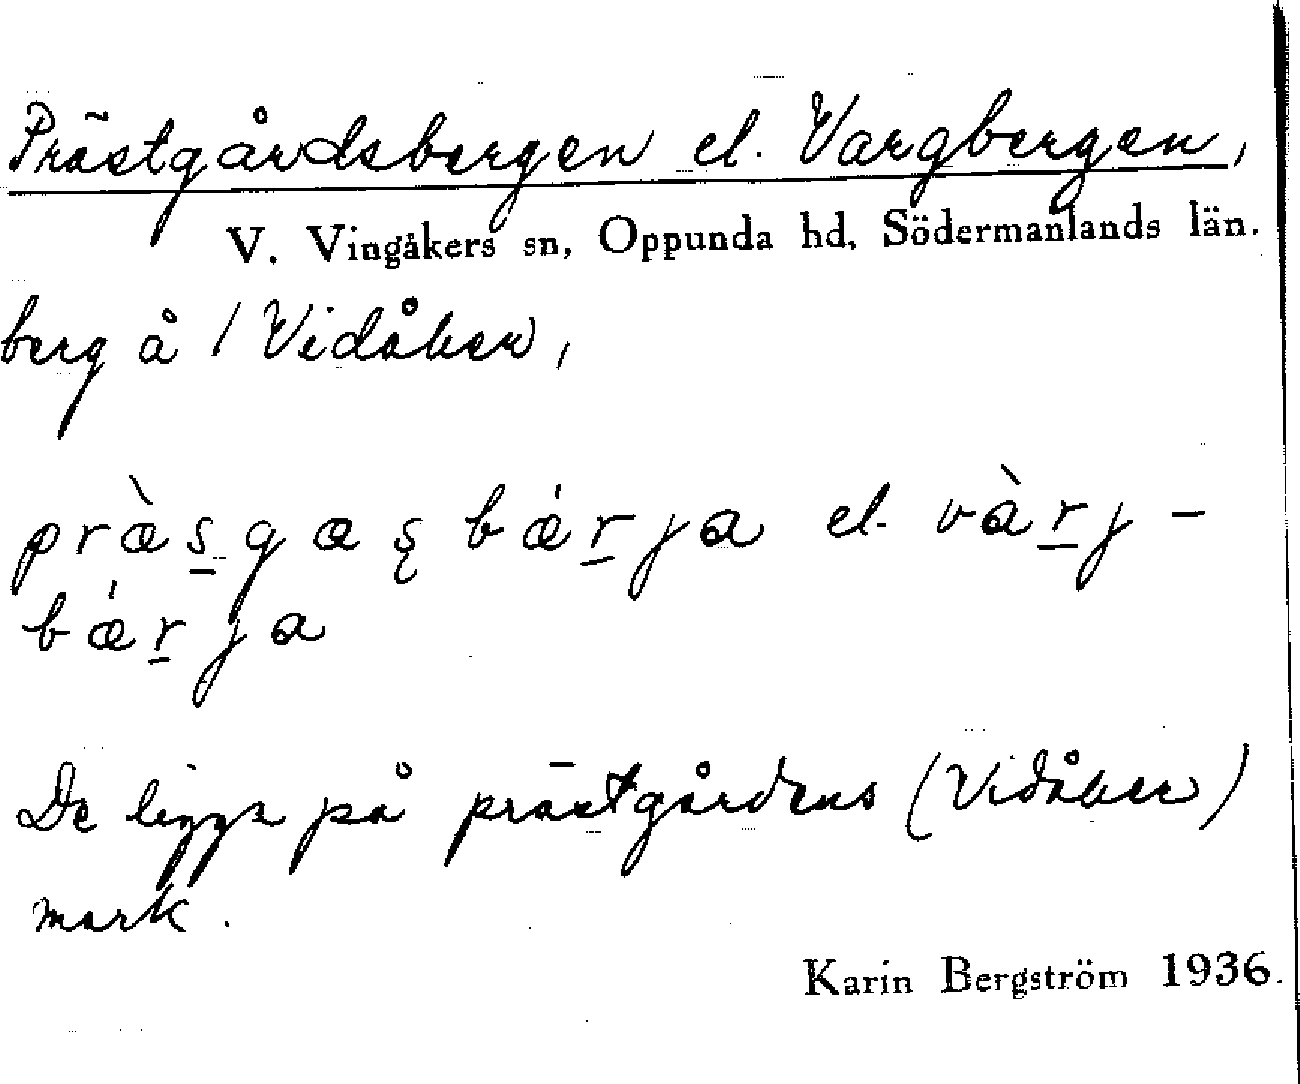 Prästgårdsbergen el. Vargbergen,
V. Vingåkers sn, Oppunda hd, Södermanlands län.
berg å 1 Vidåker,
præ̀s̲gaʂbǽr̲ja el. vàr̲j-
bǽr̲ja
De ligga på prästgårdens (Vidåker)
mark.
Karin Bergström 1936.